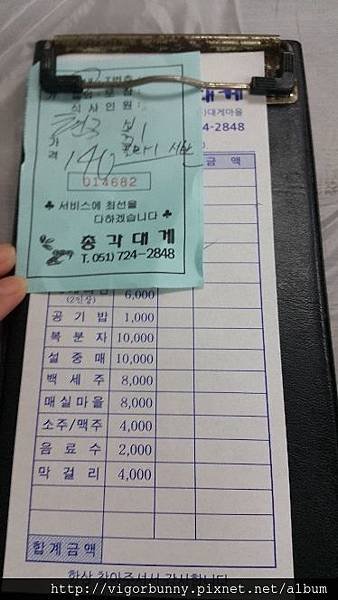 식사인원:
가격
140
014682
♣ 서비스에 최선을
다하겠습니다 ♣
총각대게
T. 051) 724-2848
대게
대게마을
4-2848
금 액
(2인상) 6,000
공기밥 1,000
복분자 10,000
설중매 10,000
백세주 8,000
매실마을 8,000
소주/맥주 4,000
음료수 2,000
막걸리 4,000
합계금액
항상 찾아주셔서 감사합니다
http://vigorbunny.pixnet.net/album